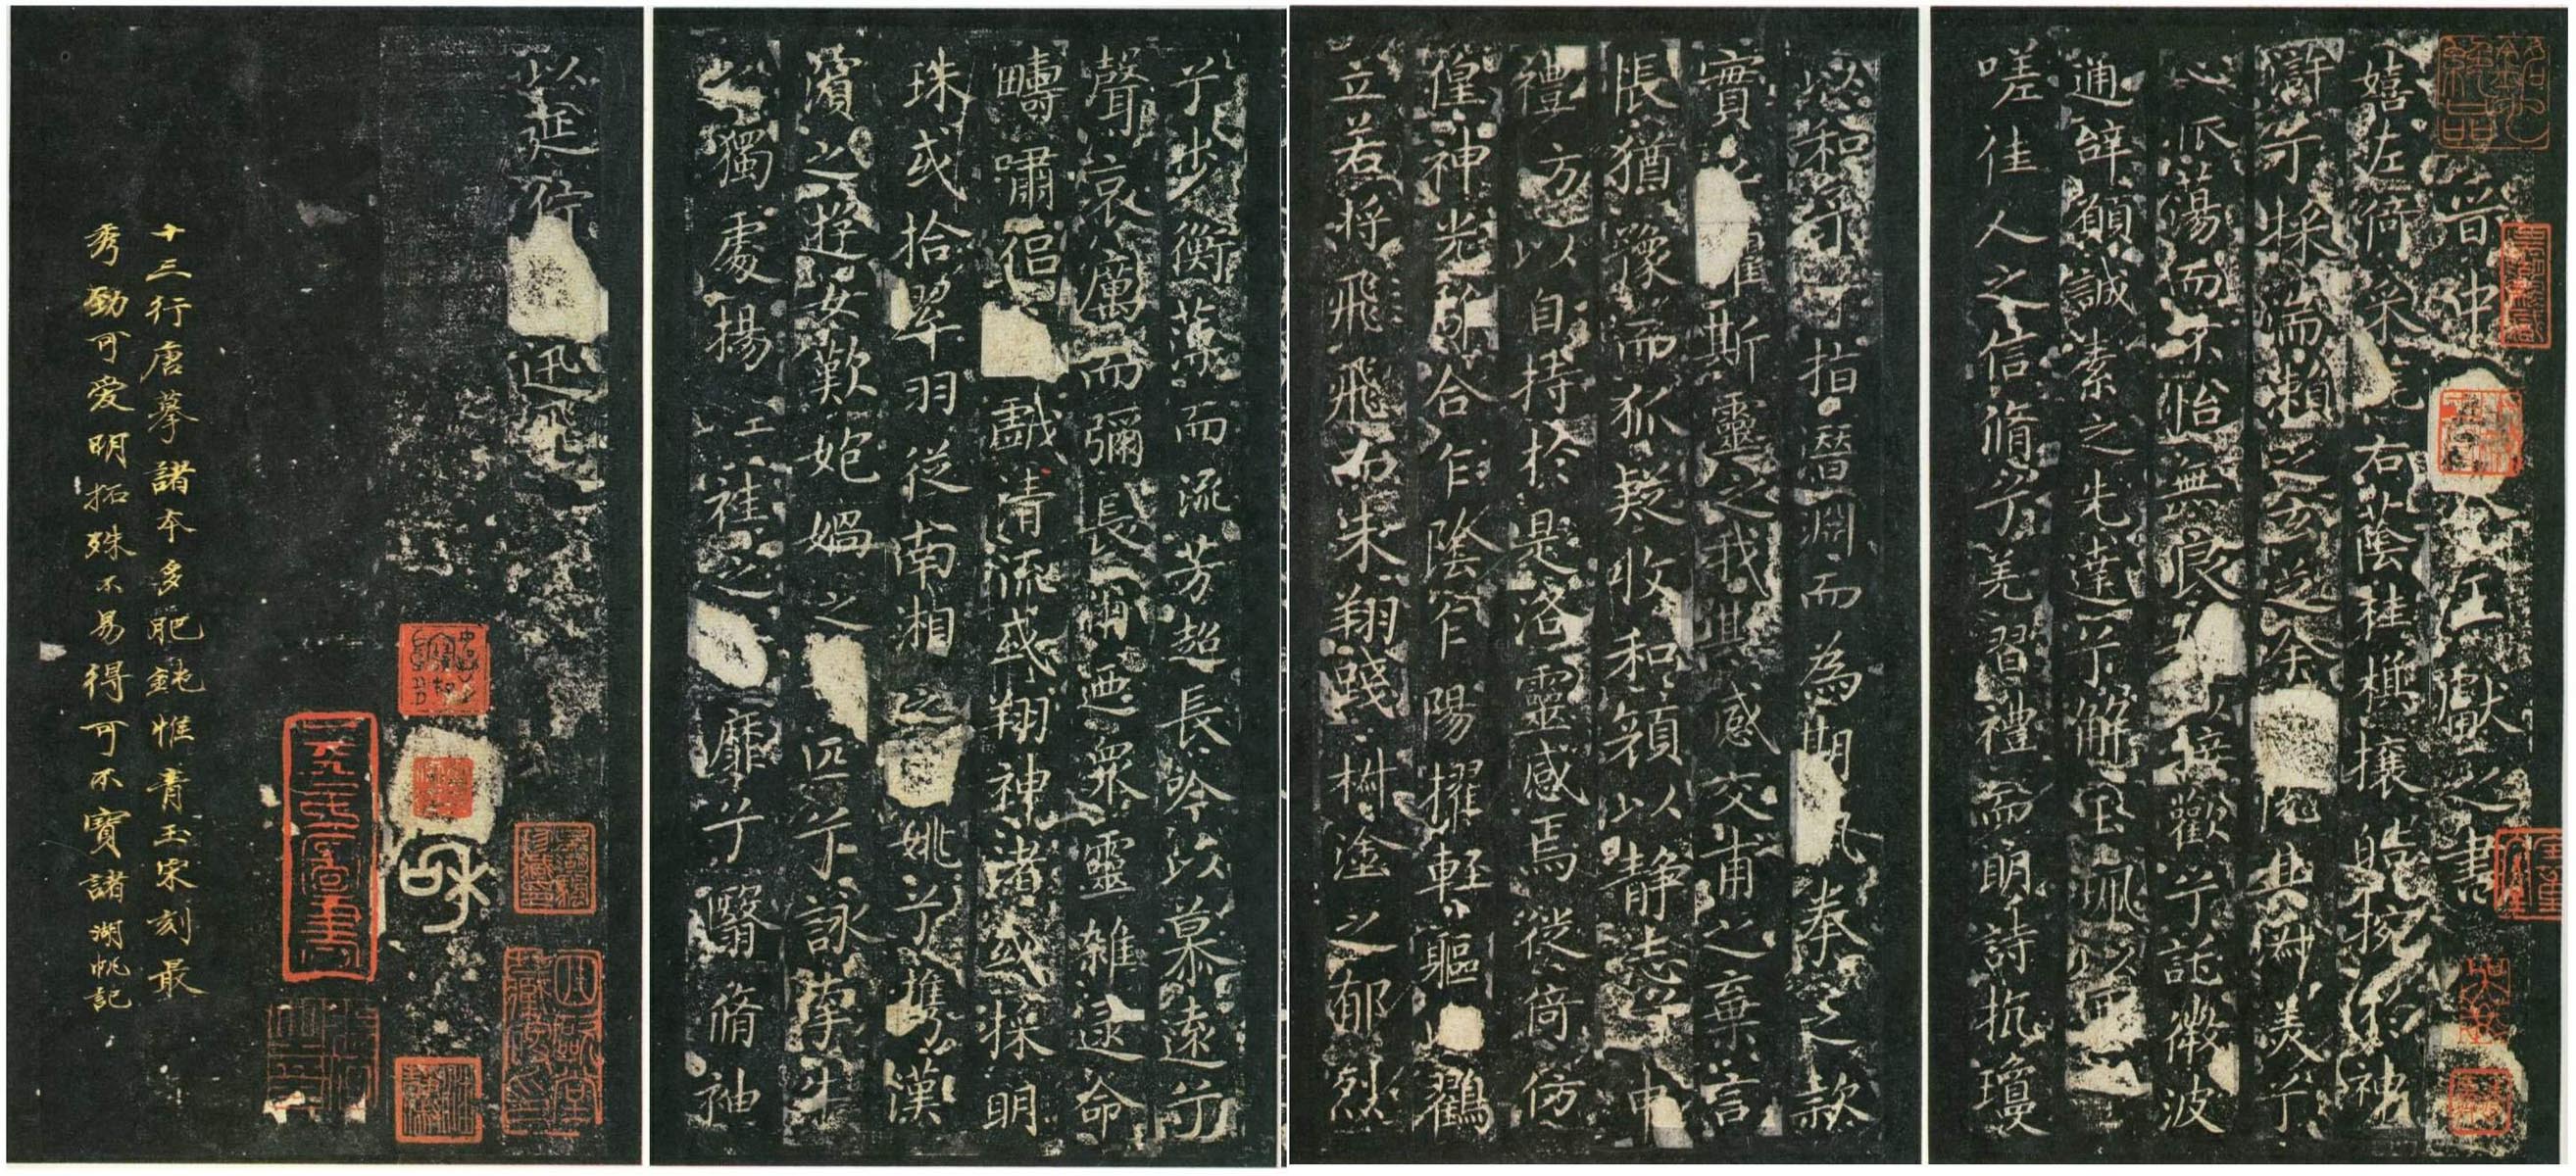 晉中 令王獻之書
嬉左倚采旄右蔭桂旗攘皓捥於神
滸兮採湍瀨之玄芝余 悅其淑美兮
心振蕩而不怡無良 以接歡兮託微波
通辭願誠素之先達兮解玉珮以要
嗟佳人之信脩兮羌習禮而明詩抗瓊
以和予兮指潛淵而為期 奉之款
實 懼斯靈之我欺感交甫之棄言
悵猶豫而狐疑收和顏以靜志兮申
禮方以自持於是洛靈感焉徙倚彷
徨神光離合乍陰乍陽擢輕軀以鶴
立若將飛而未翔踐椒塗之郁烈
兮步衡薄而流芳超長吟以慕遠兮
聲哀厲而彌長爾迺衆靈雜遝命
疇嘯侶 戲清流或翔神渚或採明
珠或拾翠羽從南湘之 姚兮攜漢
濱之遊女歎匏媧之 匹兮詠牽牛
之獨處揚 袿之 靡兮翳脩袖
以延佇 迅飛
十三行唐摹諸本多肥鈍惟青玉宋刻最
秀勁可愛明拓殊不易得可不寶諸湖帆記